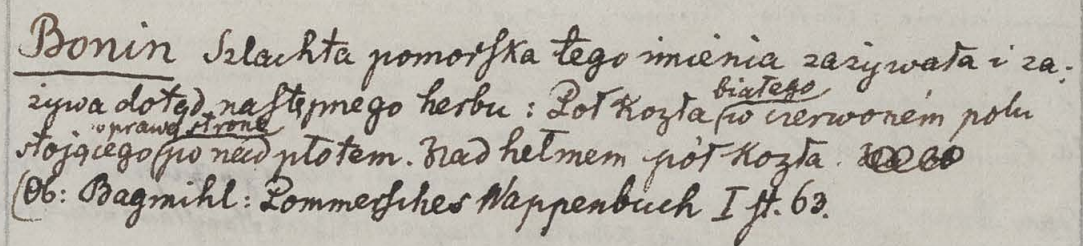 Bonin Szlachta pomorska tego imienia zażywała i za-
żywa dotąd następnego herbu: Poł kozła białego w czerwoném polu
stojącego w prawą stronę po nad płotem. Nad hełmem pół kozła.
(Ob: Bagmihl: Pommersches Wappenbuch I st. 63.